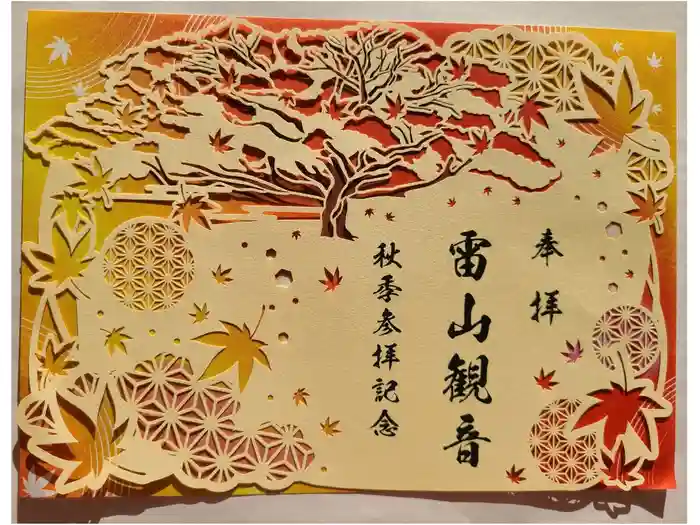 奉拝
雷山観音
秋季参拝記念